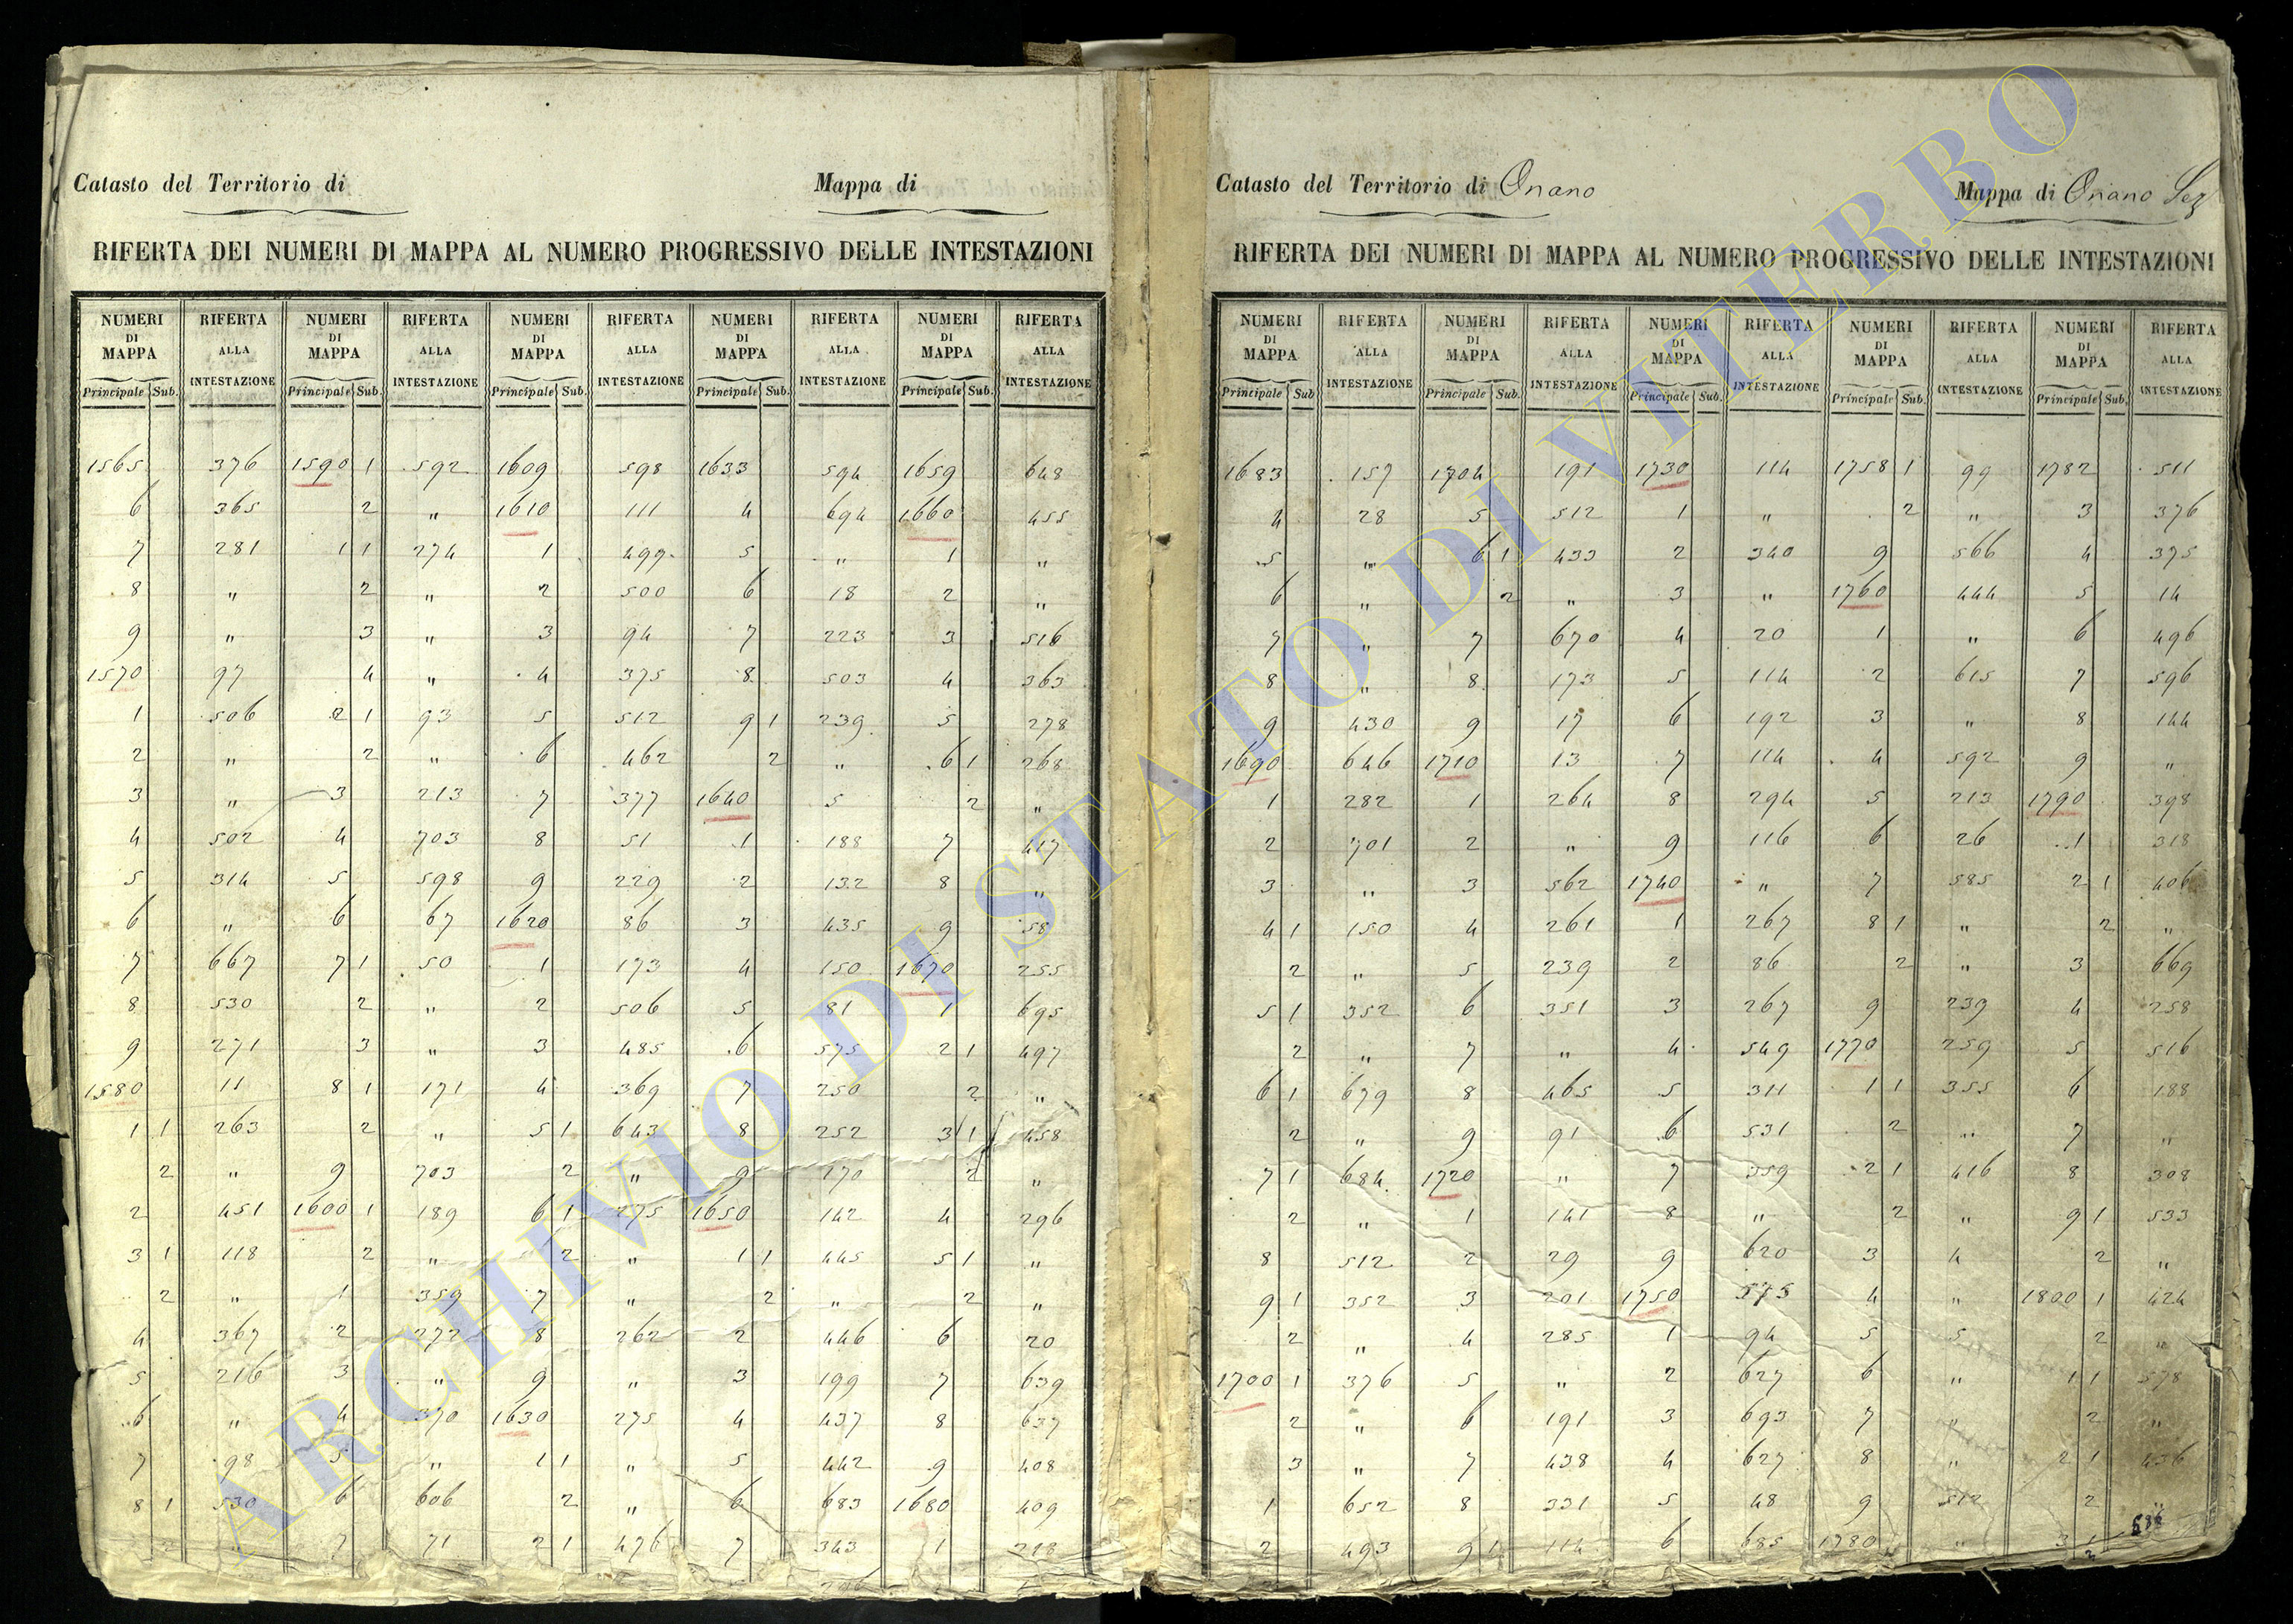 Catasto del Territorio di Mappa di
RIFERTA DEI NUMERI DI MAPPA AL NUMERO PROGRESSIVO DELLE INTESTAZIONI
NUMERI DI MAPPA RIFERTA ALLA INTESTAZIONE NUMERI DI MAPPA RIFERTA ALLA INTESTAZIONE NUMERI DI MAPPA RIFERTA ALLA INTESTAZIONE NUMERI DI MAPPA RIFERTA ALLA INTESTAZIONE NUMERI DI MAPPA RIFERTA ALLA INTESTAZIONE
Principale Sub. Principale Sub. Principale Sub. Principale Sub. Principale Sub.
1565 376 1590 1 592 1609 598 1633 594 1659 648
6 365 2 " 1610 111 4 694 1660 455
7 281 1 1 274 1 499 5 " 1 "
8 " 2 " 2 500 6 18 2 "
9 " 3 " 3 94 7 223 3 516
1570 97 4 " 4 375 8 503 4 363
1 506 2 1 93 5 512 9 1 239 5 278
2 " 2 " 6 462 2 " 6 1 268
3 " 3 213 7 377 1640 5 2 "
4 502 4 703 8 51 1 188 7 417
5 314 5 598 9 229 2 132 8 "
6 " 6 67 1620 86 3 435 9 58
7 667 7 1 50 1 173 4 150 1670 255
8 530 2 " 2 506 5 81 1 695
9 271 3 " 3 485 6 575 2 1 497
1580 11 8 1 171 4 369 7 250 2 "
1 1 263 2 " 5 1 643 8 252 3 1 458
2 " 9 703 2 " 9 170 2 "
2 451 1600 1 189 6 1 275 1650 142 4 296
3 1 118 2 " 2 " 1 1 445 5 1 "
2 " 1 359 7 " 2 " 2 "
4 367 2 272 8 262 2 446 6 20
5 216 3 " 9 " 3 199 7 639
6 " 4 370 1630 275 4 437 8 637
7 98 5 " 1 1 " 5 442 9 408
8 1 530 6 606 2 " 6 683 1680 409
2 7 71 2 1 476 7 343 1 218
Catasto del Territorio di Onano Mappa di Onano Sez
RIFERTA DEI NUMERI DI MAPPA AL NUMERO PROGRESSIVO DELLE INTESTAZIONI
NUMERI DI MAPPA RIFERTA ALLA INTESTAZIONE NUMERI DI MAPPA RIFERTA ALLA INTESTAZIONE NUMERI DI MAPPA RIFERTA ALLA INTESTAZIONE NUMERI DI MAPPA RIFERTA ALLA INTESTAZIONE NUMERI DI MAPPA RIFERTA ALLA INTESTAZIONE
Principale Sub Principale Sub. Principale Sub. Principale Sub. Principale Sub.
1683 157 1704 191 1730 114 1758 1 99 1782 511
4 28 5 512 1 " 2 " 3 376
5 " 6 1 433 2 340 9 566 4 375
6 " 2 " 3 " 1760 444 5 14
7 " 7 670 4 20 1 " 6 496
8 " 8 173 5 114 2 615 7 596
9 430 9 17 6 192 3 " 8 144
1690 646 1710 13 7 114 4 592 9 "
1 282 1 264 8 294 5 213 1790 398
2 701 2 " 9 116 6 26 1 318
3 " 3 562 1740 " 7 585 2 1 406
4 1 150 4 261 1 267 8 1 " 2 "
2 " 5 239 2 86 2 " 3 669
5 1 352 6 351 3 267 9 239 4 258
2 " 7 " 4 549 1770 259 5 516
6 1 679 8 465 5 311 1 1 355 6 188
2 " 9 91 6 531 2 " 7 "
7 1 684 1720 " 7 359 2 1 416 8 308
2 " 1 141 8 " 2 " 9 1 533
8 512 2 29 9 620 3 4 2 "
9 1 352 3 201 1750 575 4 " 1800 1 424
2 " 4 285 1 94 5 5 2 "
1700 1 376 5 " 2 627 6 " 1 1 578
2 " 6 191 3 693 7 " 2 "
3 " 7 438 4 627 8 " 2 1 436
1 652 8 331 5 48 9 512 2 "
2 493 9 1 114 6 685 1780 " 3 1
2
ARCHIVIO DI STATO DI VITERBO